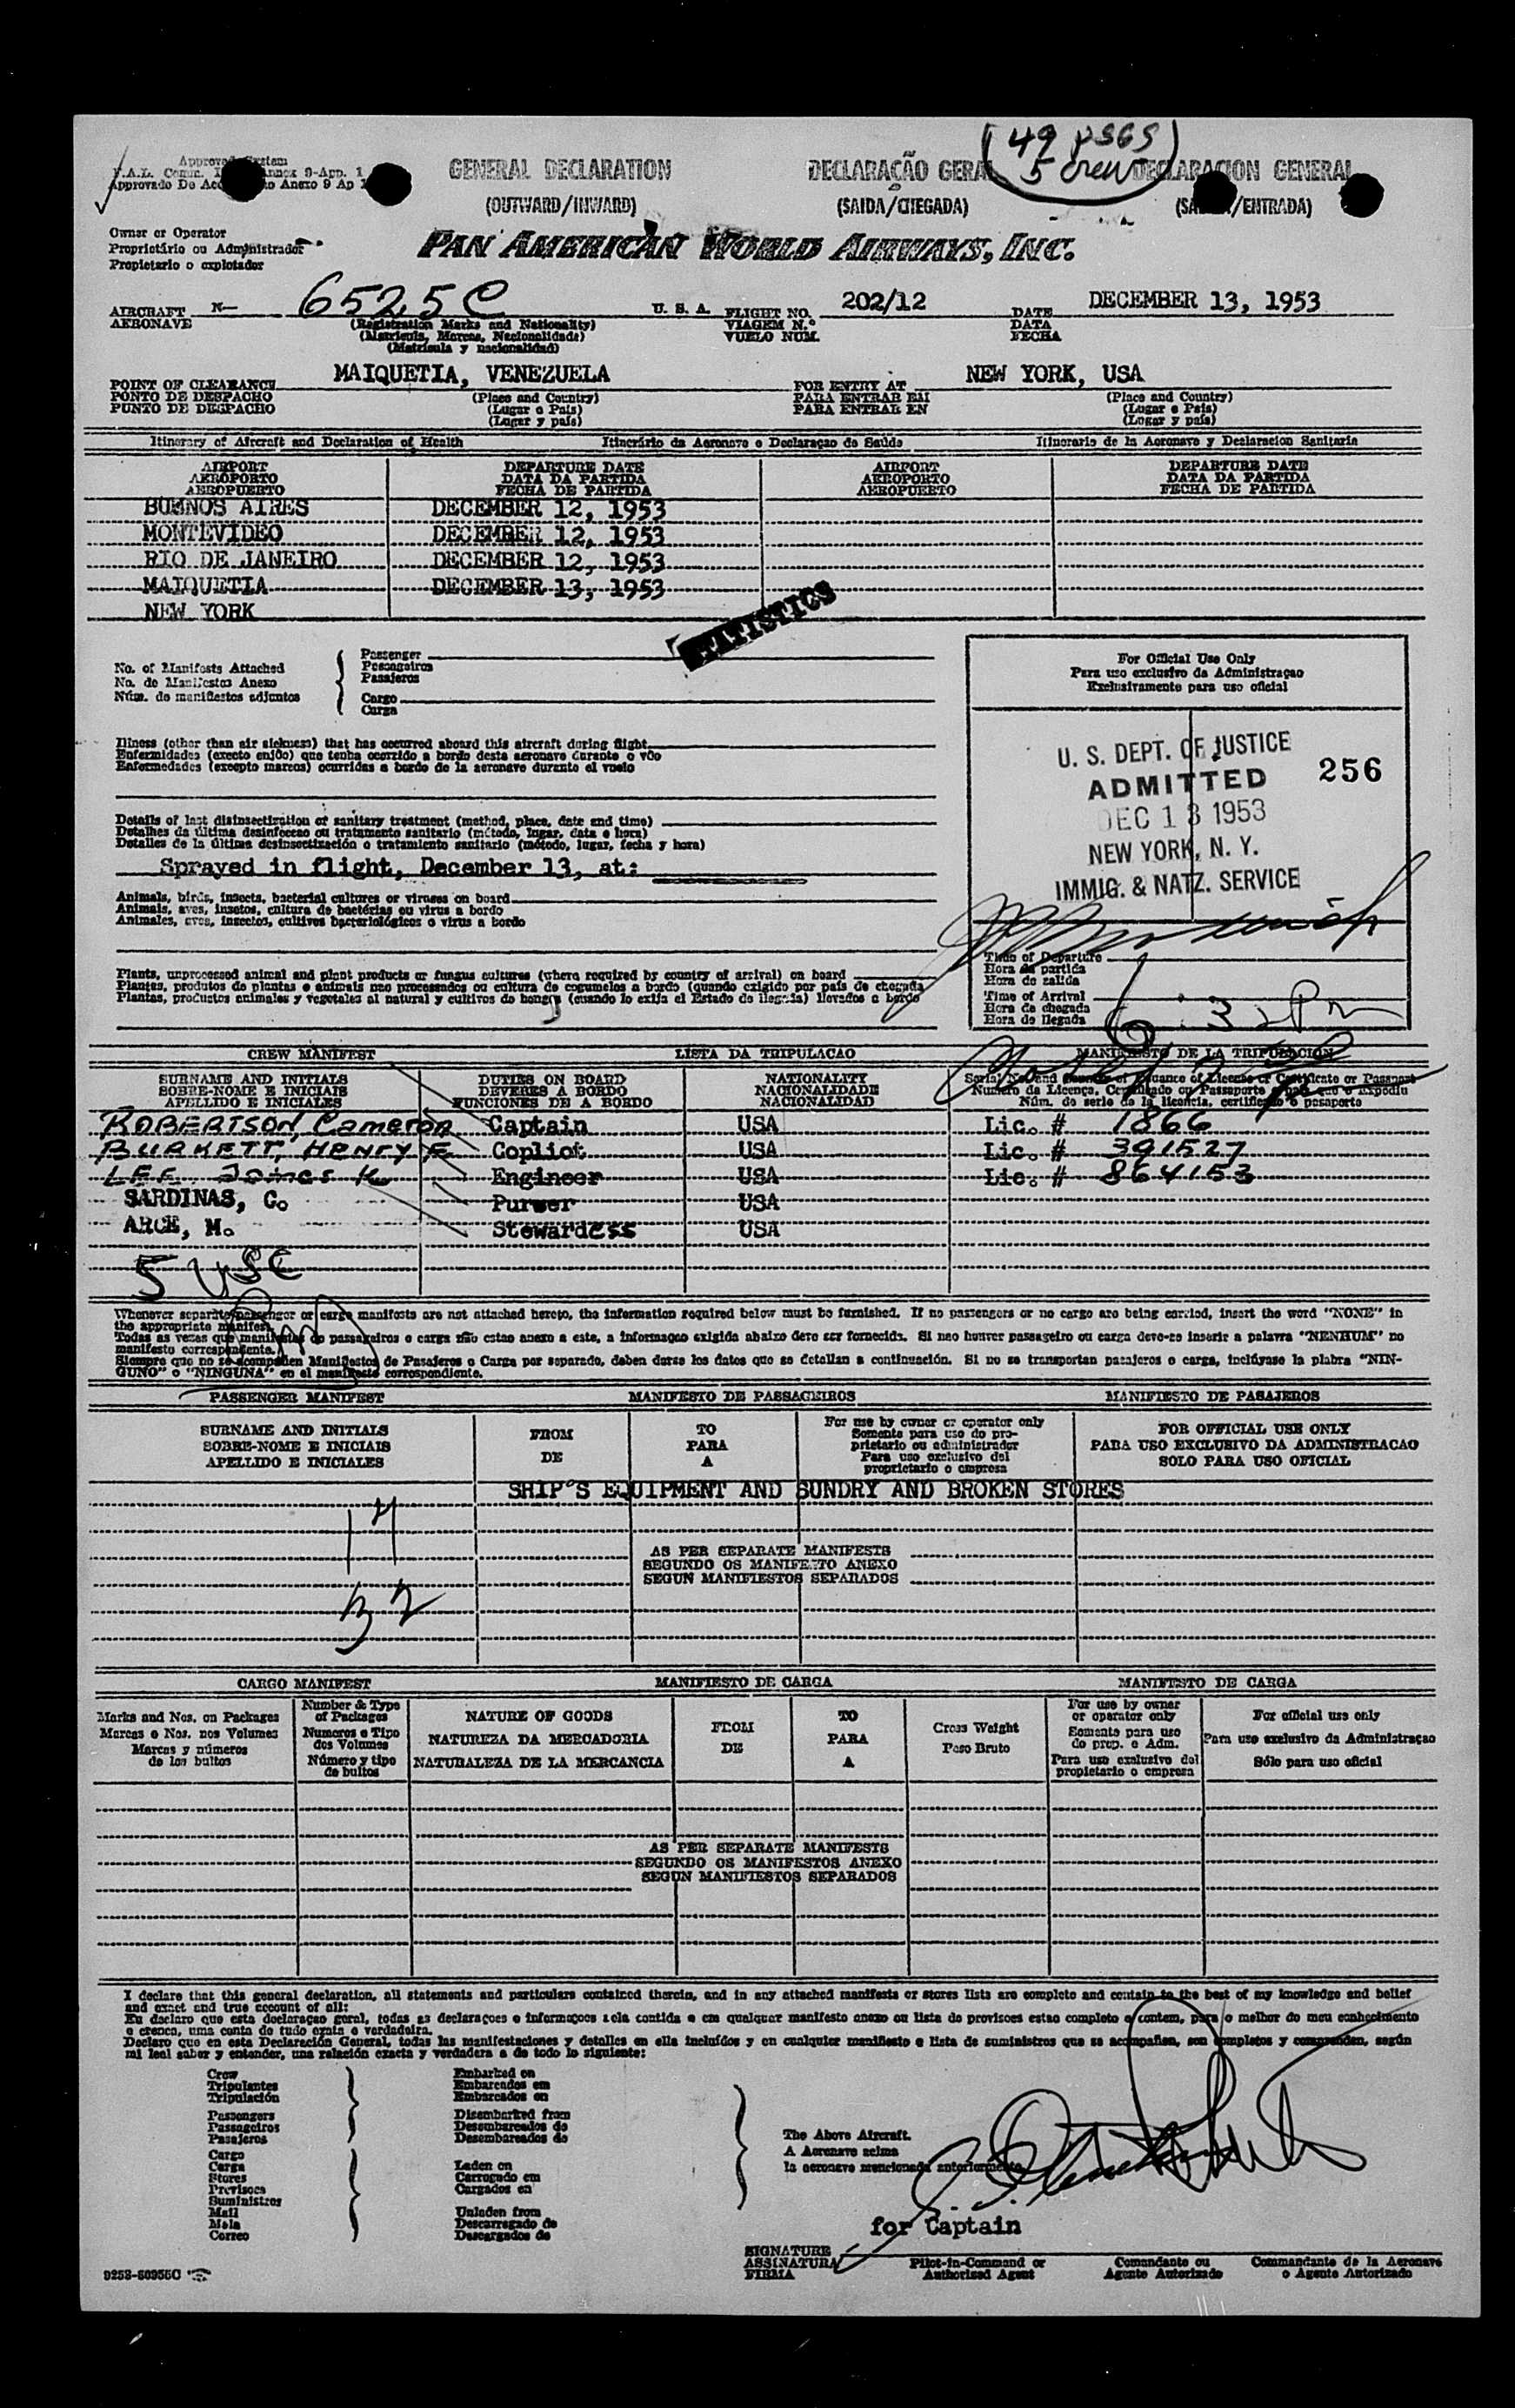 (49 psgs
5 crew)
Approved System
F.A.L. Comm. Annex 9-App. 1
Approvado De Anexo 9 Ap 1
GENERAL DECLARATION DECLARAÇÃO GERAL DECLARACION GENERAL
(OUTWARD/INWARD) (SAIDA/CHEGADA) (SALIDA/ENTRADA)
Owner or Operator
Proprietário ou Administrador
Propietario o explotador
PAN AMERICAN WORLD AIRWAYS, INC.
AIRCRAFT N— 6525C U. S. A. FLIGHT NO. 202/12 DATE DECEMBER 13, 1953
AERONAVE (Registration Marks and Nationality) VIAGEM N.° DATA
(Matricula, Marcas, Nacionalidade) VUELO NUM. FECHA
(Matricula y nacionalidad)
POINT OF CLEARANCE MAIQUETIA, VENEZUELA FOR ENTRY AT NEW YORK, USA
PONTO DE DESPACHO (Place and Country) PARA ENTRAR EM (Place and Country)
PUNTO DE DESPACHO (Lugar e País) PARA ENTRAR EN (Lugar e País)
(Lugar y país) (Lugar y país)
Itinerary of Aircraft and Declaration of Health Itinerário da Aeronave e Declaraçao de Saúde Itinerario de la Aeronave y Declaracion Sanitaria
AIRPORT DEPARTURE DATE AIRPORT DEPARTURE DATE
AEROPORTO DATA DA PARTIDA AEROPORTO DATA DA PARTIDA
AEROPUERTO FECHA DE PARTIDA AEROPUERTO FECHA DE PARTIDA
BUENOS AIRES DECEMBER 12, 1953
MONTEVIDEO DECEMBER 12, 1953
RIO DE JANEIRO DECEMBER 12, 1953
MAIQUETIA DECEMBER 13, 1953
NEW YORK
STATISTICS
No. of Manifests Attached
No. de Manifestos Anexo
Núm. de manifiestos adjuntos
Passenger
Passageiros
Pasajeros
Cargo
Carga
For Official Use Only
Para uso exclusivo da Administraçao
Exclusivamente para uso oficial
U. S. DEPT. OF JUSTICE
ADMITTED 256
DEC 13 1953
NEW YORK, N. Y.
IMMIG. & NATZ. SERVICE
Illness (other than air sickness) that has occurred aboard this aircraft during flight
Enfermidades (exceto enjôo) que tenha ocorrido a bordo desta aeronave durante o vôo
Enfermedades (excepto mareos) ocurridas a bordo de la aeronave durante el vuelo
Details of last disinsectization or sanitary treatment (method, place, date and time)
Detalhes da última desinfeccao ou tratamento sanitario (método, lugar, data e hora)
Detalles de la última desinsectización o tratamiento sanitario (método, lugar, fecha y hora)
Sprayed in flight, December 13, at:
Animals, birds, insects, bacterial cultures or viruses on board
Animais, aves, insetos, cultura de bactérias ou virus a bordo
Animales, aves, insectos, cultivos bacteriológicos o virus a bordo
Plants, unprocessed animal and plant products or fungus cultures (where required by country of arrival) on board
Plantas, produtos de plantas e animais nao processados ou cultura de cogumelos a bordo (quando exigido por país de chegada
Plantas, productos animales y vegetales al natural y cultivos de hongos (cuando lo exija el Estado de llegada) llevados a bordo
Time of Departure
Hora da partida
Hora de salida
Time of Arrival
Hora de chegada
Hora de llegada
6:32 Pm
CREW MANIFEST LISTA DA TRIPULACAO MANIFIESTO DE LA TRIPULACION
SURNAME AND INITIALS DUTIES ON BOARD NATIONALITY Serial No. and of Issuance of License or Certificate or Passport
SOBRE-NOME E INICIAIS DEVERES A BORDO NACIONALIDADE Numero da Licença, Certificado ou Passaporte
APELLIDO E INICIALES FUNCIONES DE A BORDO NACIONALIDAD Núm. de serie de la licencia, certificado o pasaporte
ROBERTSON, Cameron Captain USA Lic. # 1866
BURKETT, HENRY E Copliot USA Lic. # 391527
LEE James K Engineer USA Lic. # 864153
SARDINAS, C. Purser USA
ARCE, M. Stewardess USA
5 USC
Whenever separate passenger or cargo manifests are not attached hereto, the information required below must be furnished. If no passengers or no cargo are being carried, insert the word "NONE" in
the appropriate manifest.
Todas as vezas que manifestos de passageiros e carga não estao anexo a este, a informaçao exigida abaixo deve ser fornecida. Si nao houver passageiro ou carga deve-se inserir a palavra "NENHUM" no
manifesto correspondente.
Siempre que no se acompañen Manifiestos de Pasajeros o Carga por separado, deben darse los datos que se detallan a continuación. Si no se transportan pasajeros o carga, inclúyase la plabra "NIN-
GUNO" o "NINGUNA" en el manifiesto correspondiente.
PASSENGER MANIFEST MANIFESTO DE PASSAGEIROS MANIFIESTO DE PASAJEROS
SURNAME AND INITIALS FROM TO For use by owner or operator only FOR OFFICIAL USE ONLY
SOBRE-NOME E INICIAIS DE PARA Somente para uso do pro- PARA USO EXCLUSIVO DA ADMINISTRACAO
APELLIDO E INICIALES A prietario ou administrador SOLO PARA USO OFICIAL
Para uso exclusivo del
propietario o empresa
SHIP'S EQUIPMENT AND SUNDRY AND BROKEN STORES
17
AS PER SEPARATE MANIFESTS
SEGUNDO OS MANIFESTO ANEXO
SEGUN MANIFIESTOS SEPARADOS
32
CARGO MANIFEST MANIFIESTO DE CARGA MANIFESTO DE CARGA
Marks and Nos. on Packages Number & Type of Packages NATURE OF GOODS FROM TO Gross Weight For use by owner or operator only For official use only
Marcas e Nos. nos Volumes Numeros e Tipo dos Volumes NATUREZA DA MERCADORIA DE PARA Peso Bruto Somente para uso do prop. e Adm. Para uso exclusivo da Administraçao
Marcas y números de los bultos Número y tipo de bultos NATURALEZA DE LA MERCANCIA A Para uso exclusivo del propietario o empresa Sólo para uso oficial
AS PER SEPARATE MANIFESTS
SEGUNDO OS MANIFESTOS ANEXO
SEGUN MANIFIESTOS SEPARADOS
I declare that this general declaration, all statements and particulars contained therein, and in any attached manifests or stores lists are complete and contain to the best of my knowledge and belief
and exact and true account of all:
Eu declaro que esta declaraçao geral, todas as declaraçoes e informaçoes nela contida e em qualquer manifesto anexo ou lista de provisoes estao completo e contem, para o melhor do meu conhecimento
e crenca, uma conta de tudo exata e verdadeira.
Declaro que en esta Declaración General, todas las manifestaciones y detalles en ella incluídos y en cualquier manifiesto e lista de suministros que se acompañan, son completos y comprenden, según
mi leal saber y entender, una relación exacta y verdadera a de todo lo siguiente:
Crew Embarked on
Tripulantes Embarcados em
Tripulación Embarcados en
Passengers Disembarked from
Passageiros Desembarcados de
Pasajeros Desembarcados de
Cargo
Carga Laden on
Stores Carregado em
Previsoes Cargados en
Suministros
Mail Unladen from
Mala Descarregado de
Correo Descargados de
The Above Aircraft.
A Aeronave acima
la aeronave mencionada anteriormente
for Captain
SIGNATURE
ASSINATURA Pilot-in-Command or Comandante ou Commandante de la Aeronave
FIRMA Authorised Agent Agente Autorizado o Agente Autorizado
9253-60955C